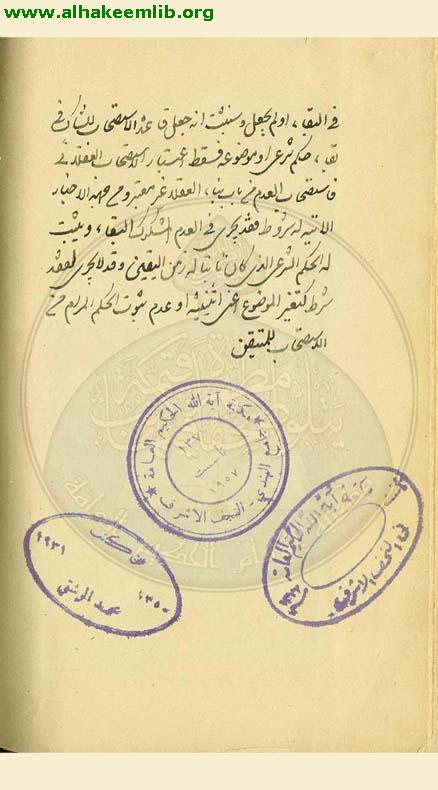 www.alhakeemlib.org
في البقاء اولم يجعل وسنثبت انه جعل قاعدة الاستصحاب للشاك في
بقاء حكم شرعي او موضوعه فسقط اعتبار الاستصحاب العقلائي
فاستصحاب العدم من باب بناء العقلاء غير معتبر ومن جهة الاخبار
الاتية له شروط فقد يجري في العدم المشكوك البقاء ويثبت
له الحكم الشرعي الذي كان ثابتا له زمن اليقين وقد لا يجري لفقد
شرط كتغير الموضوع اعني اثنينيته او عدم ثبوت الحكم المرام من
الاستصحاب للمتيقن
مكتبة آية الله الحكيم العامة
الهندي - النجف الاشرف
تأسست
١٩٥٧
مكتبة آية الله الحكيم العامة
في النجف الاشرف
١٩٣١
١٣٥٠
محمد الرشتي